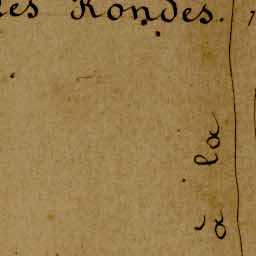 les Rondes.
à la